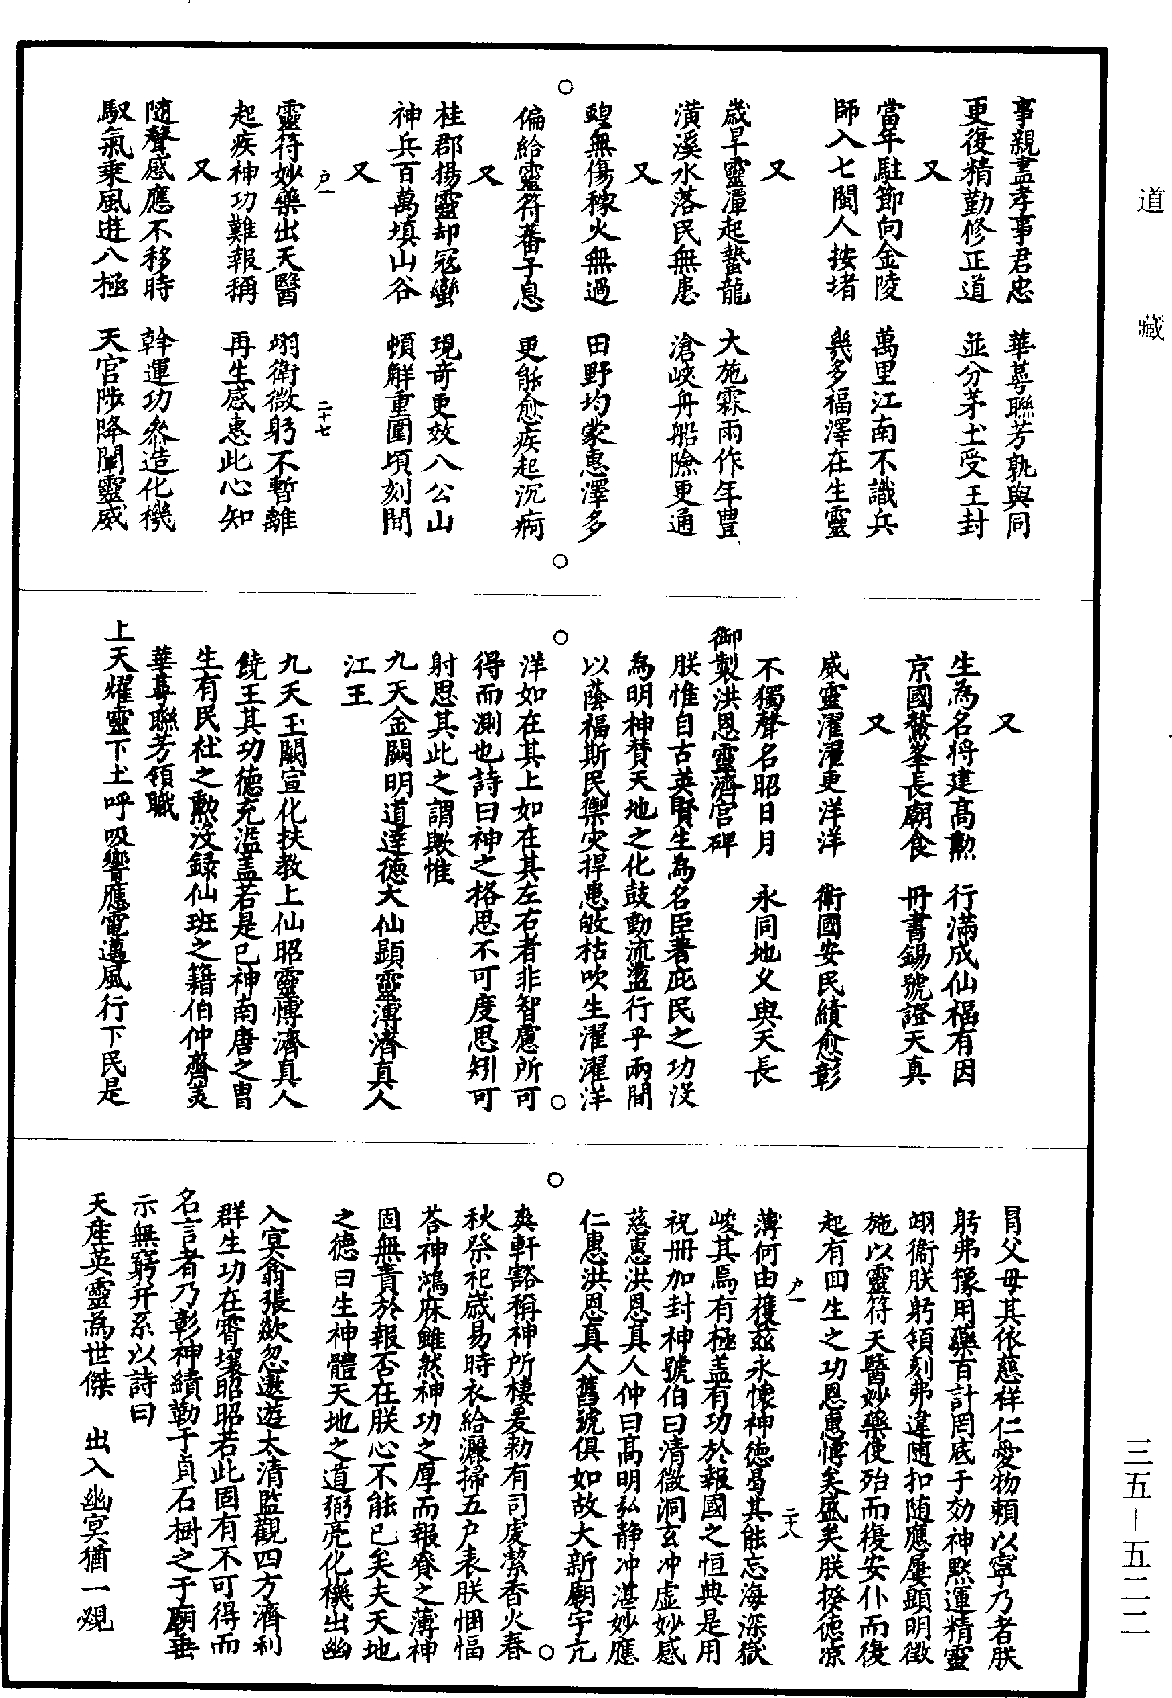 道藏
三五—五二二
事親盡孝事君忠　華萼聯芳孰與同
更復精勤修正道　並分茅土受王封
又
當年駐節向金陵　萬里江南不識兵
師入七閩人按堵　幾多福澤在生靈
又
歲旱靈潭起蟄龍　大施霖雨作年豐
潢溪水落民無患　滄峽舟船險更通
又
蝗無傷稼火無過　田野均蒙惠澤多
偏給靈符蕃子息　更能愈疾起沉痾
又
桂郡揚靈却寇蠻　現奇更效八公山
神兵百萬填山谷　頓解重圍頃刻間
又
戶一　二十七
靈符妙藥出天醫　翊衛微躬不暫離
起疾神功難報稱　再生感惠此心知
又
隨聲感應不移時　斡運功參造化機
馭氣乘風遊八極　天官陟降闡靈威
又
生為名將建高勳　行滿成仙福有因
京國鰲峯長廟食　冊書錫號證天真
又
威靈濯濯更洋洋　衛國安民績愈彰
不獨聲名昭日月　永同地久與天長
御製洪恩靈濟宮碑
朕惟自古英賢生為名臣著庇民之功沒
為明神贊天地之化鼓動流盪行乎兩間
以蔭福斯民禦灾捍患皷枯吹生濯濯洋
洋如在其上如在其左右者非智慮所可
得而測也詩曰神之格思不可度思矧可
射思其此之謂歟惟
九天金闕明道達德大仙顯靈溥濟真人
江王
九天玉闕宣化扶教上仙昭靈博濟真人
饒王其功德充溢盖若是已神南唐之胄
生有民社之勲没録仙班之籍伯仲齊美
華萼聯芳領職
上天燿靈下土呼吸響應電邁風行下民是
冐父母其依慈祥仁愛物賴以寧乃者朕
躬弗豫用藥百計罔底于効神黙運精靈
翊衞朕躬頃刻弗違随扣随應屢顯明徵
施以靈符天醫妙藥使殆而復安仆而復
起有回生之功恩惠博矣盛矣朕揆德凉
戶一　二十八
薄何由獲兹永懷神德曷其能忘海深嶽
峻其焉有極盖有功於報國之恒典是用
祝冊加封神號伯曰清微洞玄冲虛妙感
慈惠洪恩真人仲曰高明弘静冲湛妙應
仁惠洪恩真人舊號俱如故大新廟宇亢
爽軒豁稱神所棲爰勑有司虔潔香火春
秋祭祀歲易時衣給灑掃五户表朕悃愊
荅神鴻庥雖然神功之厚而報賚之薄神
固無責於報否在朕心不能已矣夫天地
之德曰生神體天地之道弼亮化機出幽
入㝠翕張歘忽遨遊太清監觀四方濟利
群生功在霄壤昭昭若此固有不可得而
名言者乃彰神績勒于貞石樹之于廟垂
示無窮并系以詩曰
天産英靈為世傑　出入幽冥猶一覕